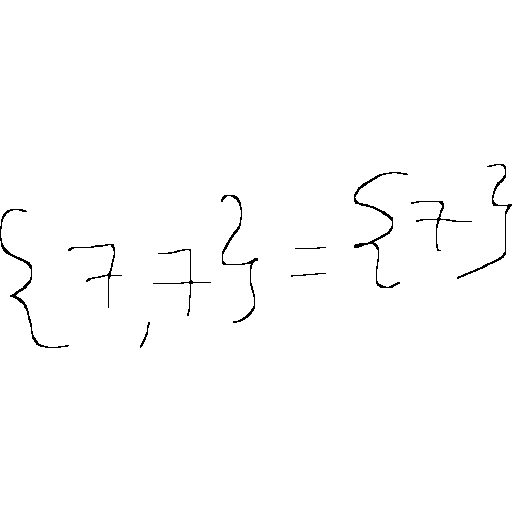 {7,7} = {7}